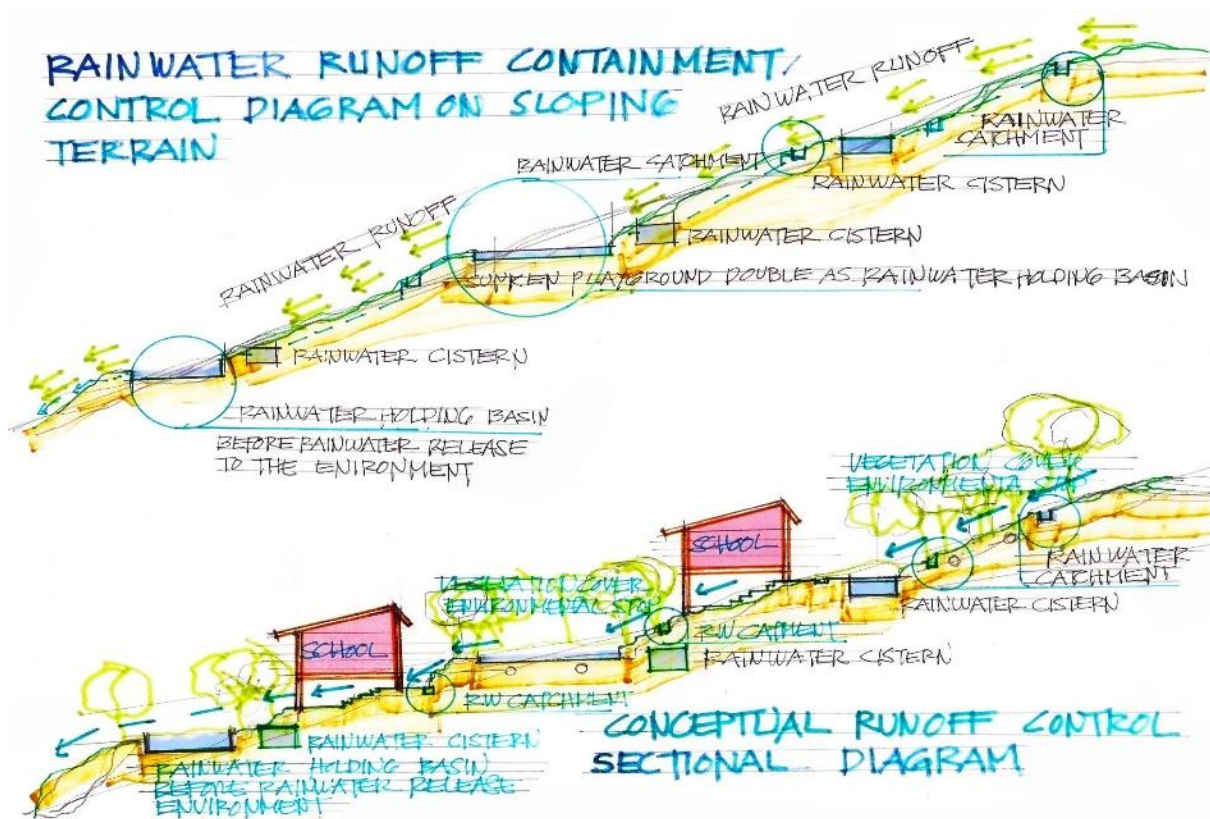 RAINWATER RUNOFF CONTAINMENT/
CONTROL DIAGRAM ON SLOPING
TERRAIN
RAINWATER RUNOFF
RAINWATER
CATCHMENT
RAINWATER CATCHMENT
RAINWATER CISTERN
RAINWATER RUNOFF
RAINWATER CISTERN
SUNKEN PLAYGROUND DOUBLE AS RAINWATER HOLDING BASIN
RAINWATER CISTERN
RAINWATER HOLDING BASIN
BEFORE RAINWATER RELEASE
TO THE ENIRONMENT
VEGETATION COVER
ENVIRONMENTA STOP
SCHOOL
RAINWATER
CATCHMENT
RAINWATER CISTERN
VEGETATION COVER
ENVIRONMENTAL STOP
RW CATPMENT
RAINWATER CISTERN
SCHOOL
RW CATCHMENT
RAINWATER CISTERN
RAINWATER HOLDING BASIN
BEFORE RAINWATER RELEASE
ENVIRONMENT
CONCEPTUAL RUNOFF CONTROL
SECTIONAL DIAGRAM